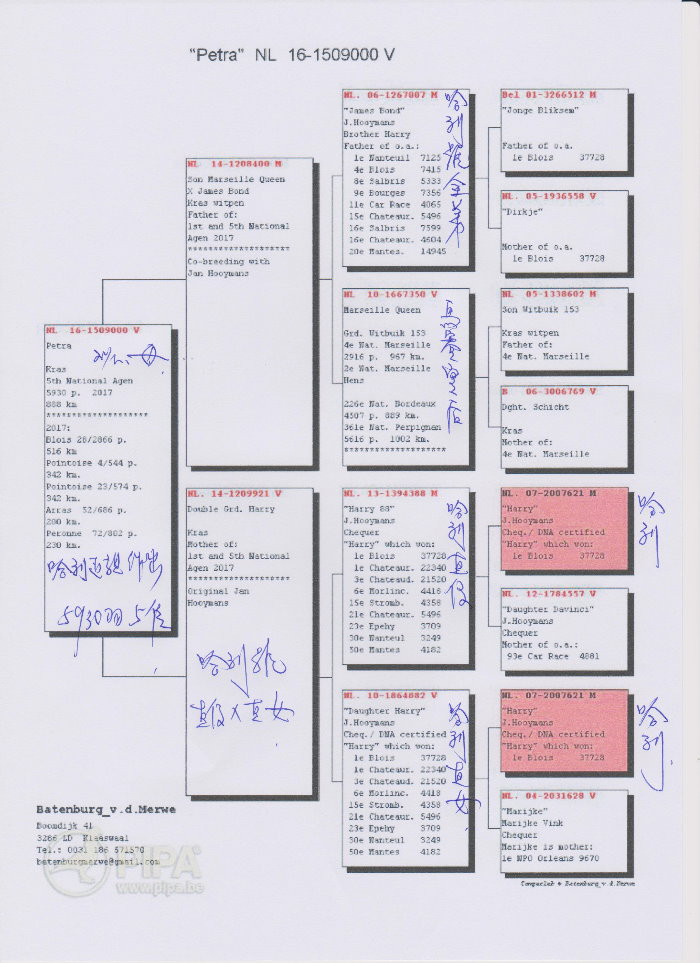 "Petra" NL 16-1509000 V
NL 16-1509000 V
Petra
Kras
5th National Agen
5930 p. 2017
888 km
********************
2017:
Blois 28/2866 p.
516 km
Pointoise 4/544 p.
342 km.
Pointoise 23/574 p.
342 km.
Arras 52/686 p.
280 km.
Peronne 72/802 p.
230 km.
5930羽5位
NL 14-1208400 M
Son Marseille Queen
X James Bond
Kras witpen
Father of:
1st and 5th National
Agen 2017
********************
Co-breeding with
Jan Hooymans
NL. 14-1209921 V
Double Grd. Harry
Kras
Mother of:
1st and 5th National
Agen 2017
********************
Original Jan
Hooymans
哈利
直仔X直女
NL. 06-1267007 M
"James Bond"
J.Hooymans
Brother Harry
Father of o.a.:
1e Nanteuil 7125
4e Blois 7415
8e Salbris 5333
9e Bourges 7356
11e Car Race 4065
15e Chateaur. 5496
16e Salbris 7599
16e Chateaur. 4604
20e Mantes. 14945
哈利 全弟
NL 10-1667350 V
Marseille Queen
Grd. Witbuik 153
4e Nat. Marseille
2916 p. 967 km.
2e Nat. Marseille
Hens
226e Nat. Bordeaux
4507 p. 889 km.
361e Nat. Perpignan
5616 p. 1002 km.
********************
NL. 13-1394388 M
"Harry 88"
J.Hooymans
Chequer
"Harry" which won:
1e Blois 37728
1e Chateaur. 22340
3e Chateaud. 21520
6e Morlinc. 4418
15e Stromb. 4358
21e Chateaur. 5496
23e Epehy 3709
30e Nanteul 3249
50e Mantes 4182
哈利直仔
NL. 10-1864882 V
"Daughter Harry"
J.Hooymans
Cheq./ DNA certified
"Harry" which won:
1e Blois 37728
1e Chateaur. 22340
3e Chateaud. 21520
6e Morlinc. 4418
15e Stromb. 4358
21e Chateaur. 5496
23e Epehy 3709
30e Nanteul 3249
50e Mantes 4182
哈利直女
Bel 01-3266512 M
"Jonge Bliksem"
Father of o.a.
1e Blois 37728
NL. 05-1936558 V
"Dirkje"
Mother of o.a.
1e Blois 37728
NL 05-1338602 M
Son Witbuik 153
Kras witpen
Father of:
4e Nat. Marseille
B 06-3006769 V
Dght. Schicht
Kras
Mother of:
4e Nat. Marseille
NL. 07-2007621 M
"Harry"
J.Hooymans
Cheq./ DNA certified
"Harry" which won:
1e Blois 37728
哈利
NL. 12-1784557 V
"Daughter Davinci"
J.Hooymans
Chequer
Mother of o.a.:
93e Car Race 4881
NL. 07-2007621 M
"Harry"
J.Hooymans
Cheq./ DNA certified
"Harry" which won:
1e Blois 37728
哈利
NL. 04-2031628 V
"Marijke"
Marijke Vink
Chequer
Marijke is mother:
1e NPO Orleans 9670
Compuclub © Batenburg_v.d.Merwe
Batenburg_v.d.Merwe
Boomdijk 41
3286 LD Klaaswaal
Tel.: 0031 186 571570
batenburgmerwe@gmail.com
PIPA
www.pipa.be